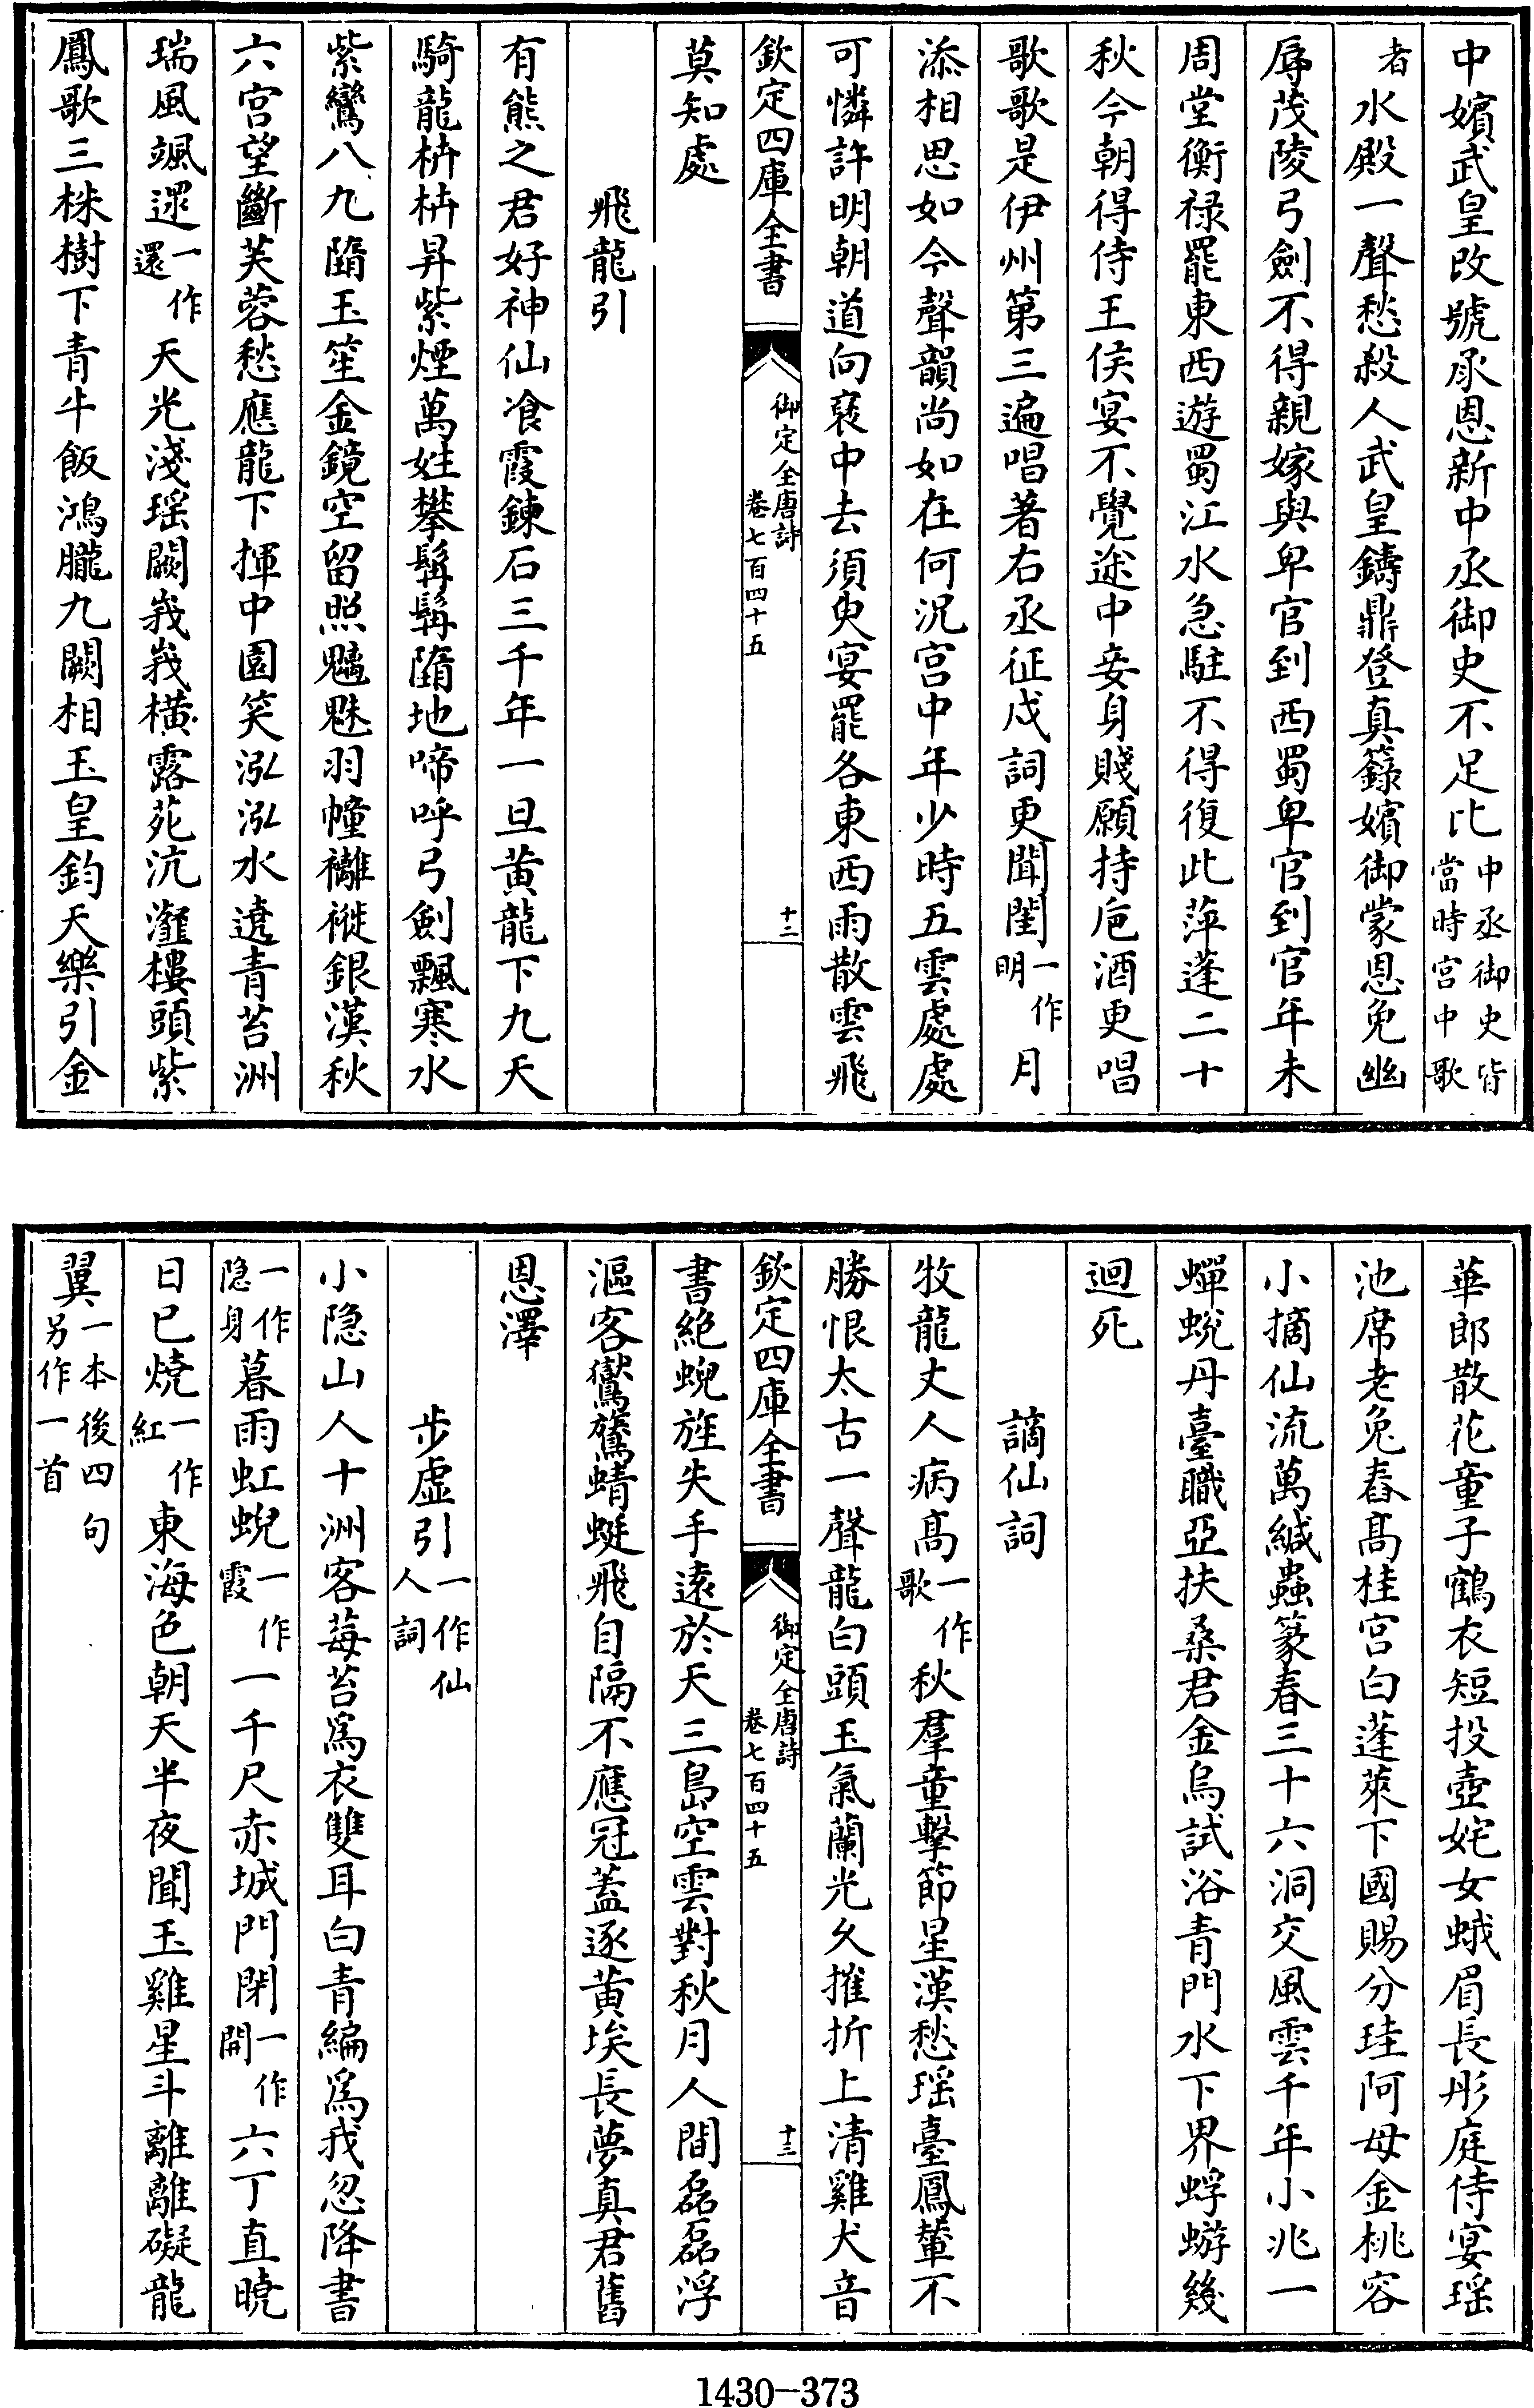 中嬪武皇改號承恩新中丞御史不足比中丞御史皆當時宫中歌
者水殿一聲愁殺人武皇鑄鼎登真籙嬪御蒙恩免幽
辱茂陵弓劍不得親嫁與卑官到西蜀卑官到官年未
周堂衡祿罷東西遊蜀江水急駐不得復此萍蓬二十
秋今朝得侍王侯宴不覺迷中妾身賤願持巵酒更唱
歌歌是伊州第三遍唱著右丞征戍詞更聞閨一作明月
添相思如今聲韻尚如在何況宫中年少時五雲處處
可憐許明朝道向襃中去須臾宴罷各東西雨散雲飛
欽定四庫全書 御定全唐詩卷七百四十五 十二
莫知處
飛龍引
有熊之君好神仙飡霞鍊石三千年一旦黄龍下九天
騎龍枿枿昇紫煙萬姓攀髯髯墮地啼呼弓劍飄寒水
紫鸞八九墮玉笙金鏡空留照魑魅羽幢襹褷銀漢秋
六宫望斷芙蓉愁應龍下揮中園笑泓泓水遶青苔洲
瑞風颯遝一作還天光淺瑶闕峩峩橫露苑沆瀣樓頭紫
鳳歌三株樹下青牛飯鴻朧九闕相玉皇鈞天樂引金
華郎散花童子鶴衣短投壺姹女蛾眉長彤庭侍宴瑶
池席老兔舂髙桂宫白蓬萊下國賜分珪阿母金桃容
小摘仙流萬緘蟲篆春三十六洞交風雲千年小兆一
蟬蛻丹臺職亞扶桑君金烏試浴青門水下界蜉蝣幾
迴死
謫仙詞
牧龍丈人病髙一作歌秋羣童擊節星漢愁瑶臺鳳輦不
勝恨太古一聲龍白頭玉氣蘭光久摧折上清雞犬音
欽定四庫全書 御定全唐詩卷七百四十五 十三
書絶蜺旌失手遠於天三島空雲對秋月人間磊磊浮
漚客鸑鷟蜻蜓飛自隔不應冠蓋逐黄埃長夢真君舊
恩澤
步虚引一作仙人詞
小隐山人十洲客莓苔爲衣雙耳白青編爲我忽降書
一作隐身暮雨虹蜺一作霞一千尺赤城門閉一作開六丁直曉
日已燒一作紅東海色朝天半夜聞玉雞星斗離離礙龍
翼一本後四句另作一首
1430-373